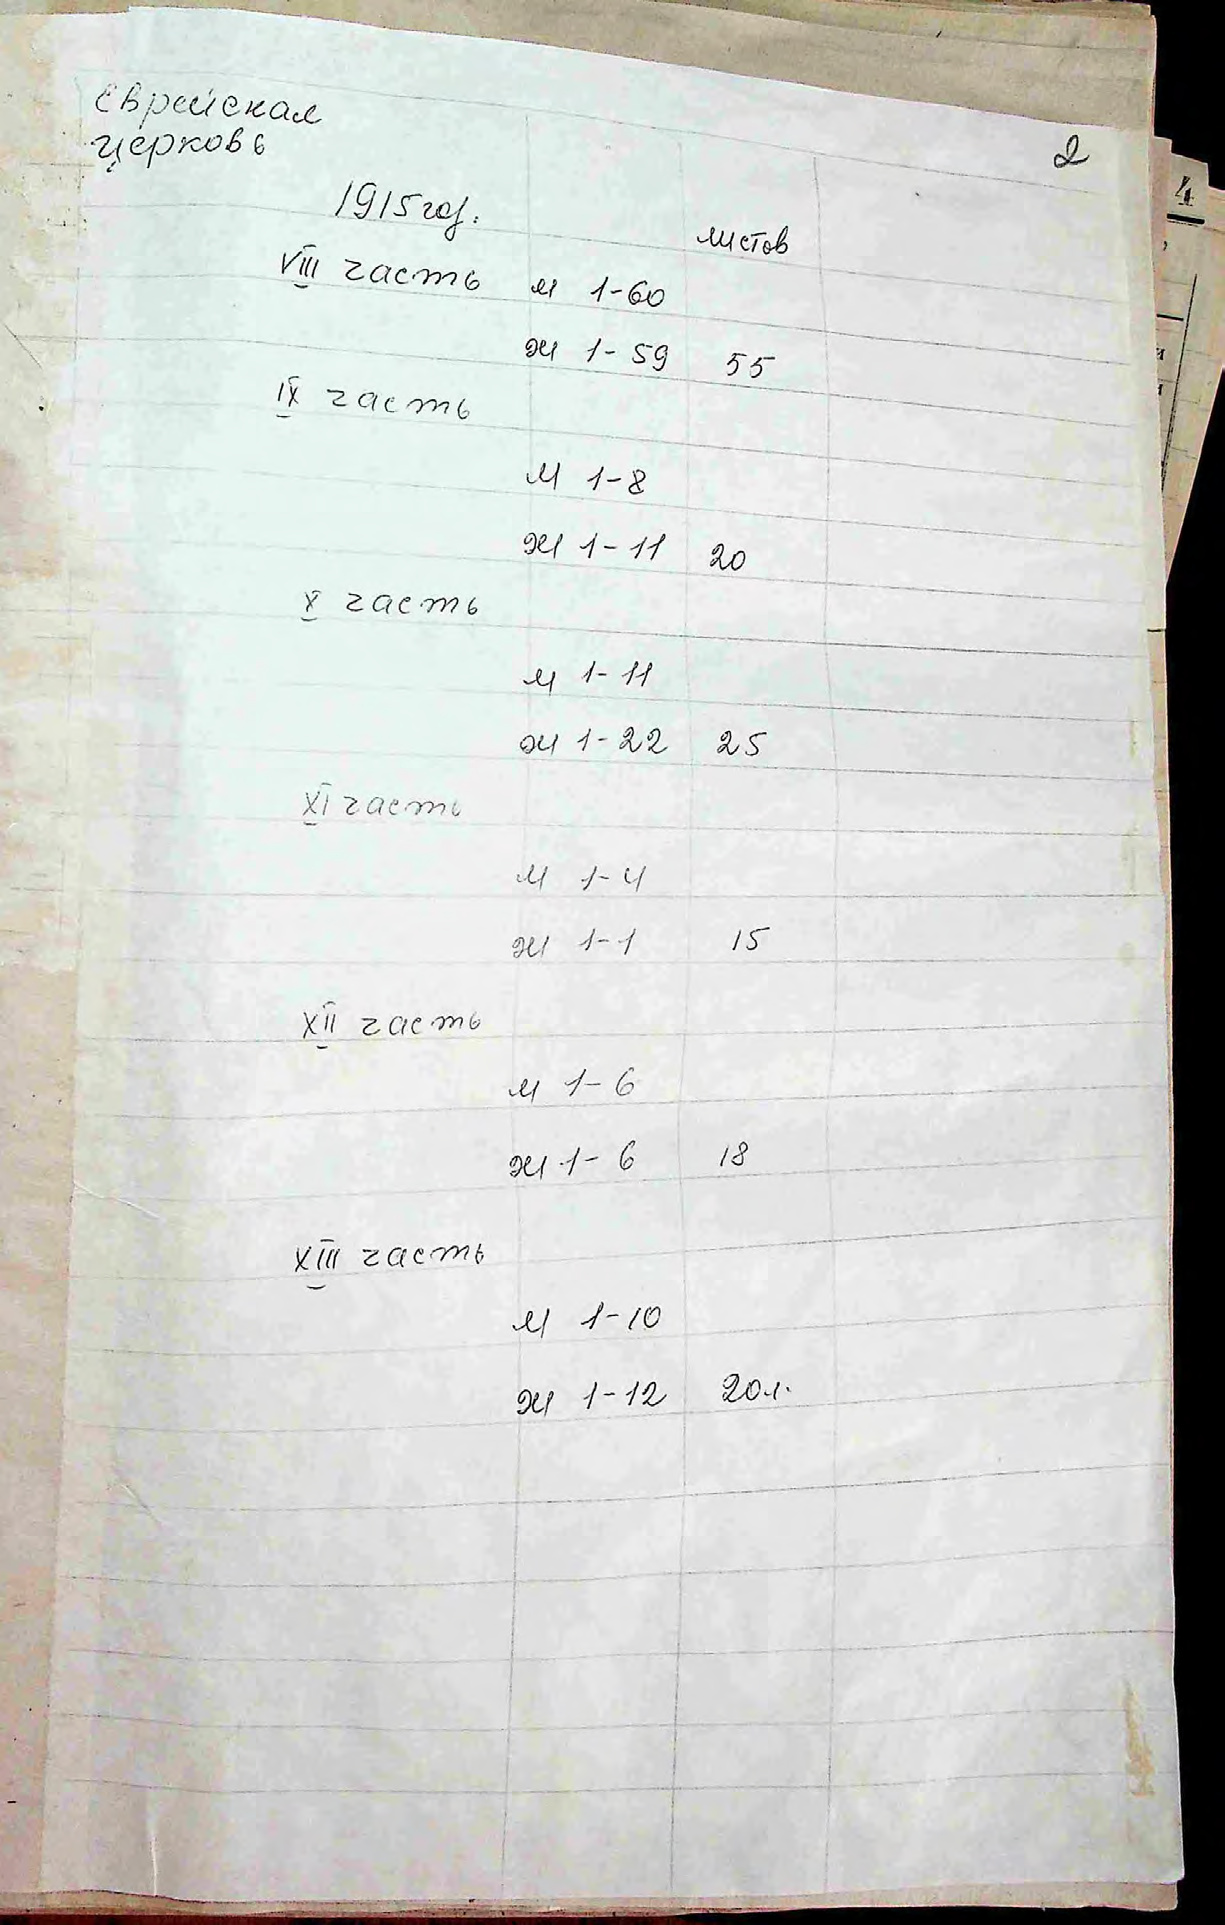 Еврейская
церковь
2
4
1915 год.
листов
VIII часть м 1-60
ж 1-59 55
IX часть
м 1-8
ж 1-11 20
X часть
м 1-11
ж 1-22 25
XI часть
м 1-4
ж 1-1 15
XII часть
м 1-6
ж 1-6 18
XIII часть
м 1-10
ж 1-12 20 л.